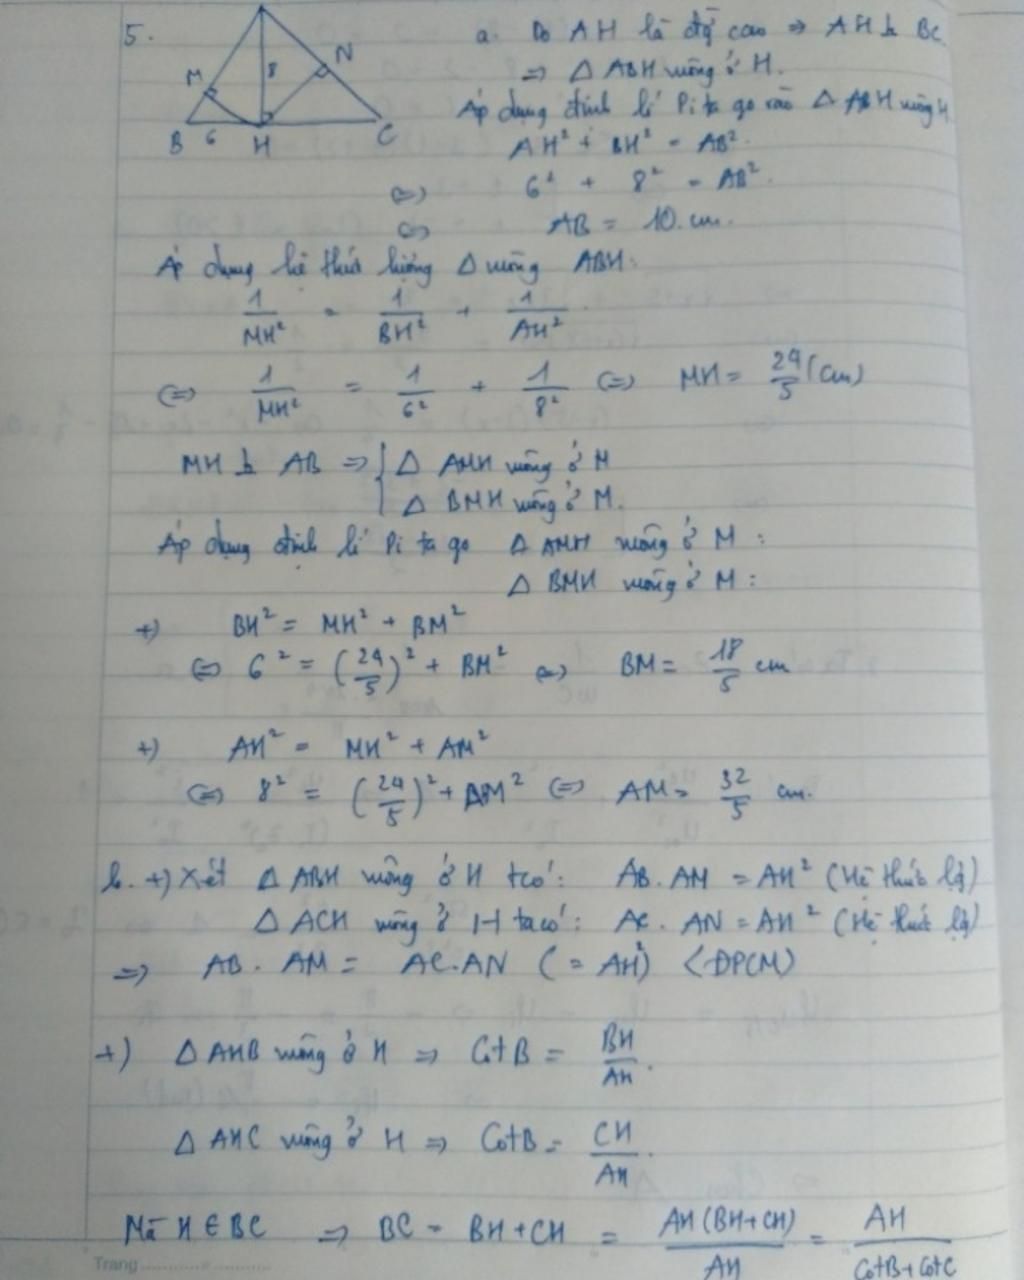 5.
M
8
N
B 6 H C
a. Do AH là độ cao ⇒ AH ⊥ BC
⇒ Δ ABH vuông ở H.
Áp dụng định lí Pi ta go vào Δ ABH vuông H
AH² + BH² = AB².
⇔ 6² + 8² = AB².
⇔ AB = 10 cm.
Áp dụng hệ thức lượng Δ vuông ABH:
1/MH² = 1/BH² + 1/AH²
⇔ 1/MH² = 1/6² + 1/8² ⇔ MH = 24/5 (cm)
MH ⊥ AB ⇒ { Δ AMH vuông ở M
Δ BMH vuông ở M.
Áp dụng định lí Pi ta go Δ AMH vuông ở M :
Δ BMH vuông ở M :
+) BH² = MH² + BM²
⇔ 6² = (24/5)² + BM² ⇔ BM = 18/5 cm
+) AH² = MH² + AM²
⇔ 8² = (24/5)² + AM² ⇔ AM = 32/5 cm.
b. +) Xét Δ ABH vuông ở H tcó: AB. AM = AH² (Hệ thức lg)
Δ ACH vuông ở H ta có: AC. AN = AH² (Hệ thức lg)
⇒ AB. AM = AC.AN (= AH²) <ĐPCM>
+) Δ AHB vuông ở H ⇒ CotB = BH/AH.
Δ AHC vuông ở H ⇒ CotB = CH/AH.
Mà H ∈ BC ⇒ BC = BH + CH = AH(BH+CH)/AH = AH/CotB + CotC
Trang